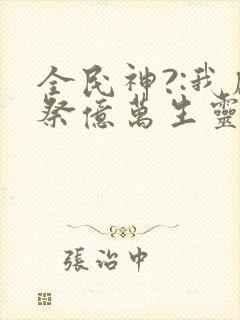 全民神?:我
祭億萬生靈
張治中